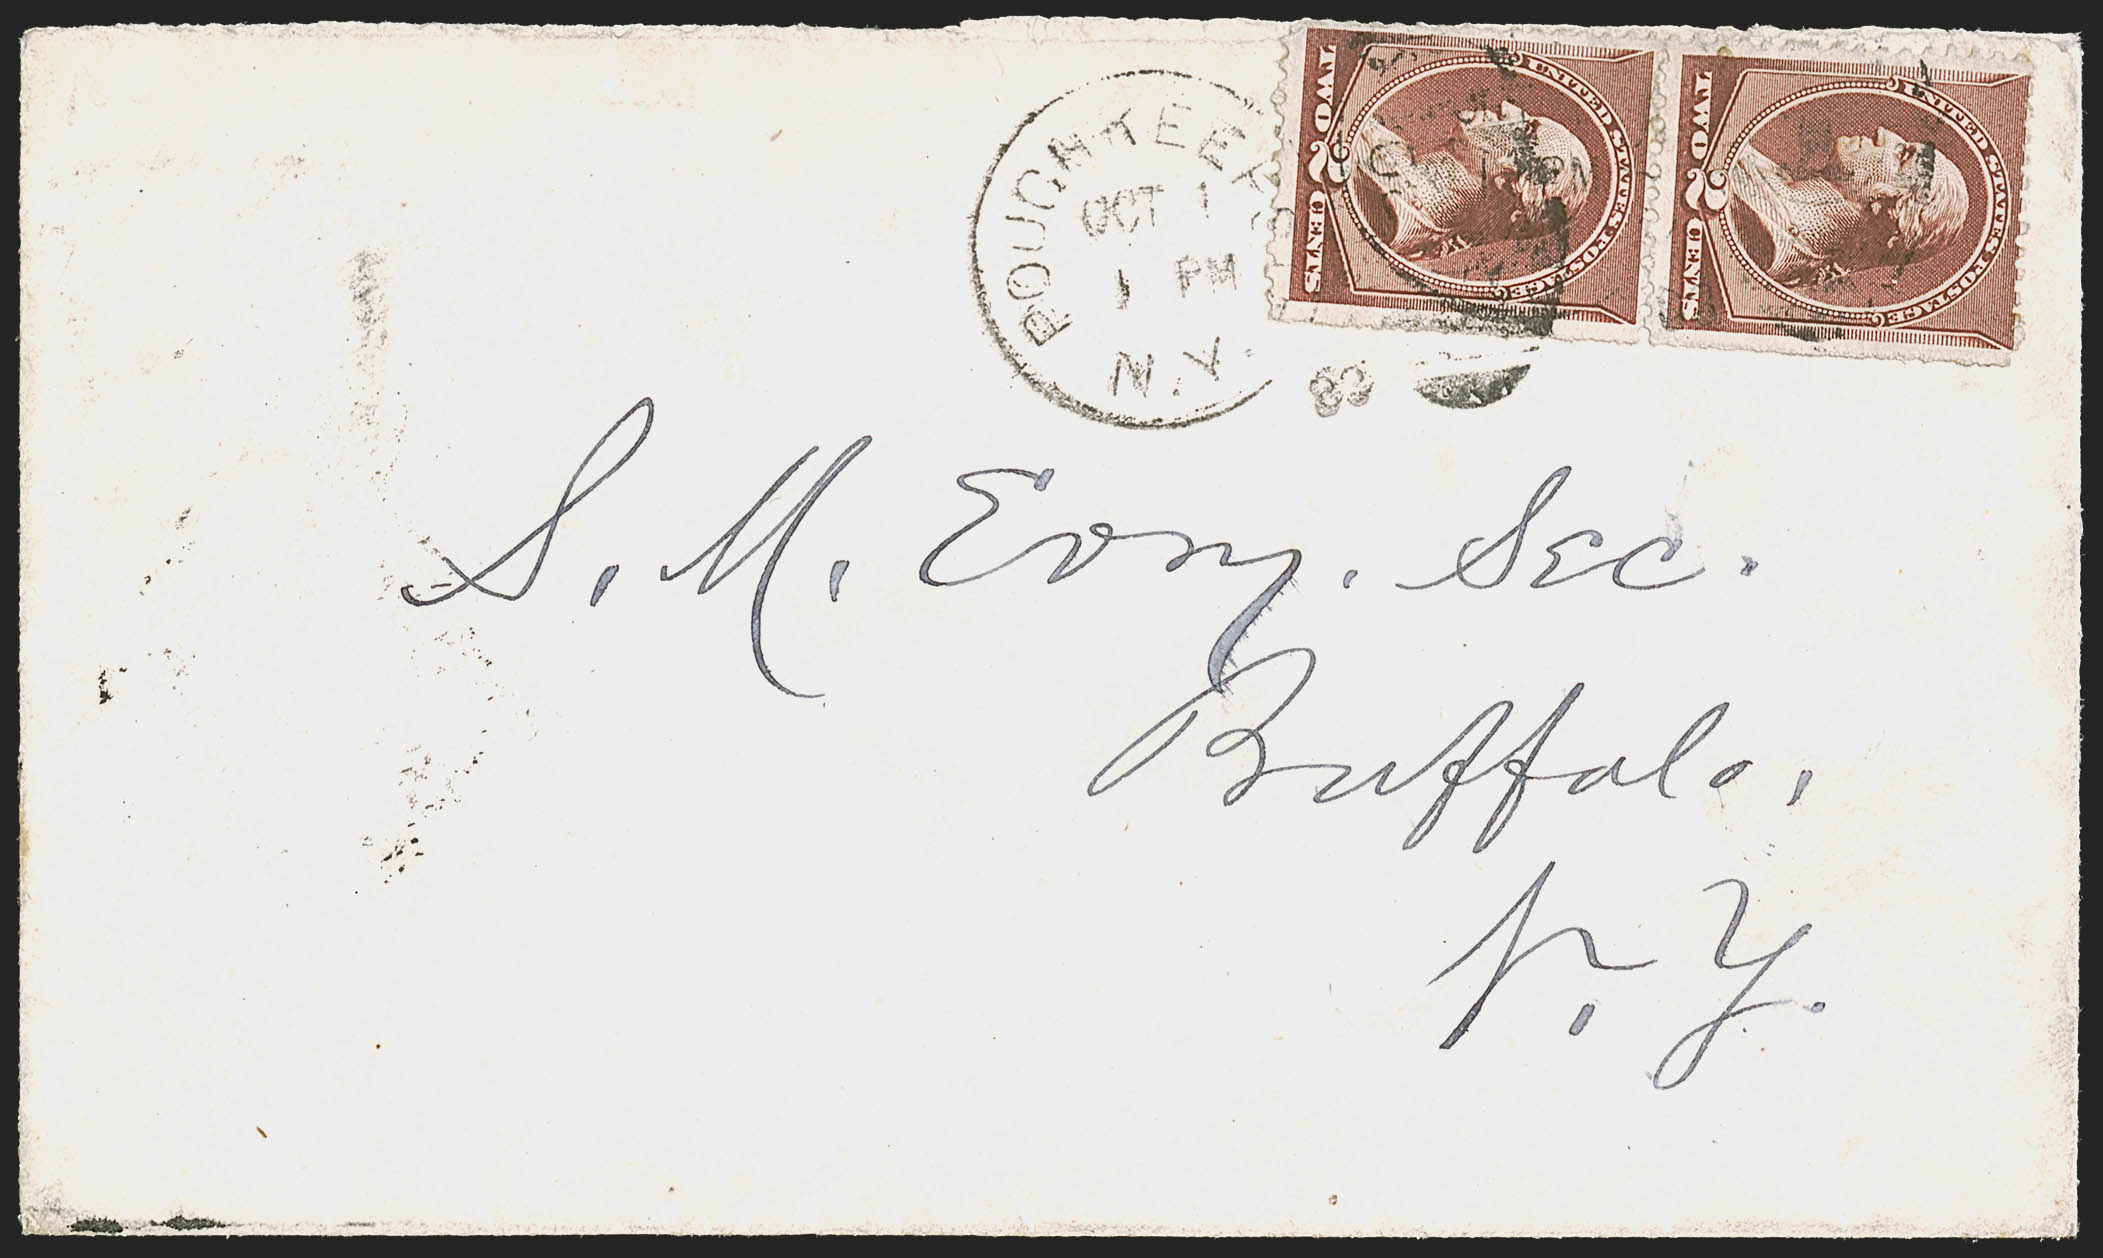 POUGHKEEP
OCT 1
1 PM
N.Y.
83
UNITED STATES POSTAGE
TWO 2 CENTS
UNITED STATES POSTAGE
TWO 2 CENTS
S. M. Evory. Sec.
Buffalo,
N. Y.